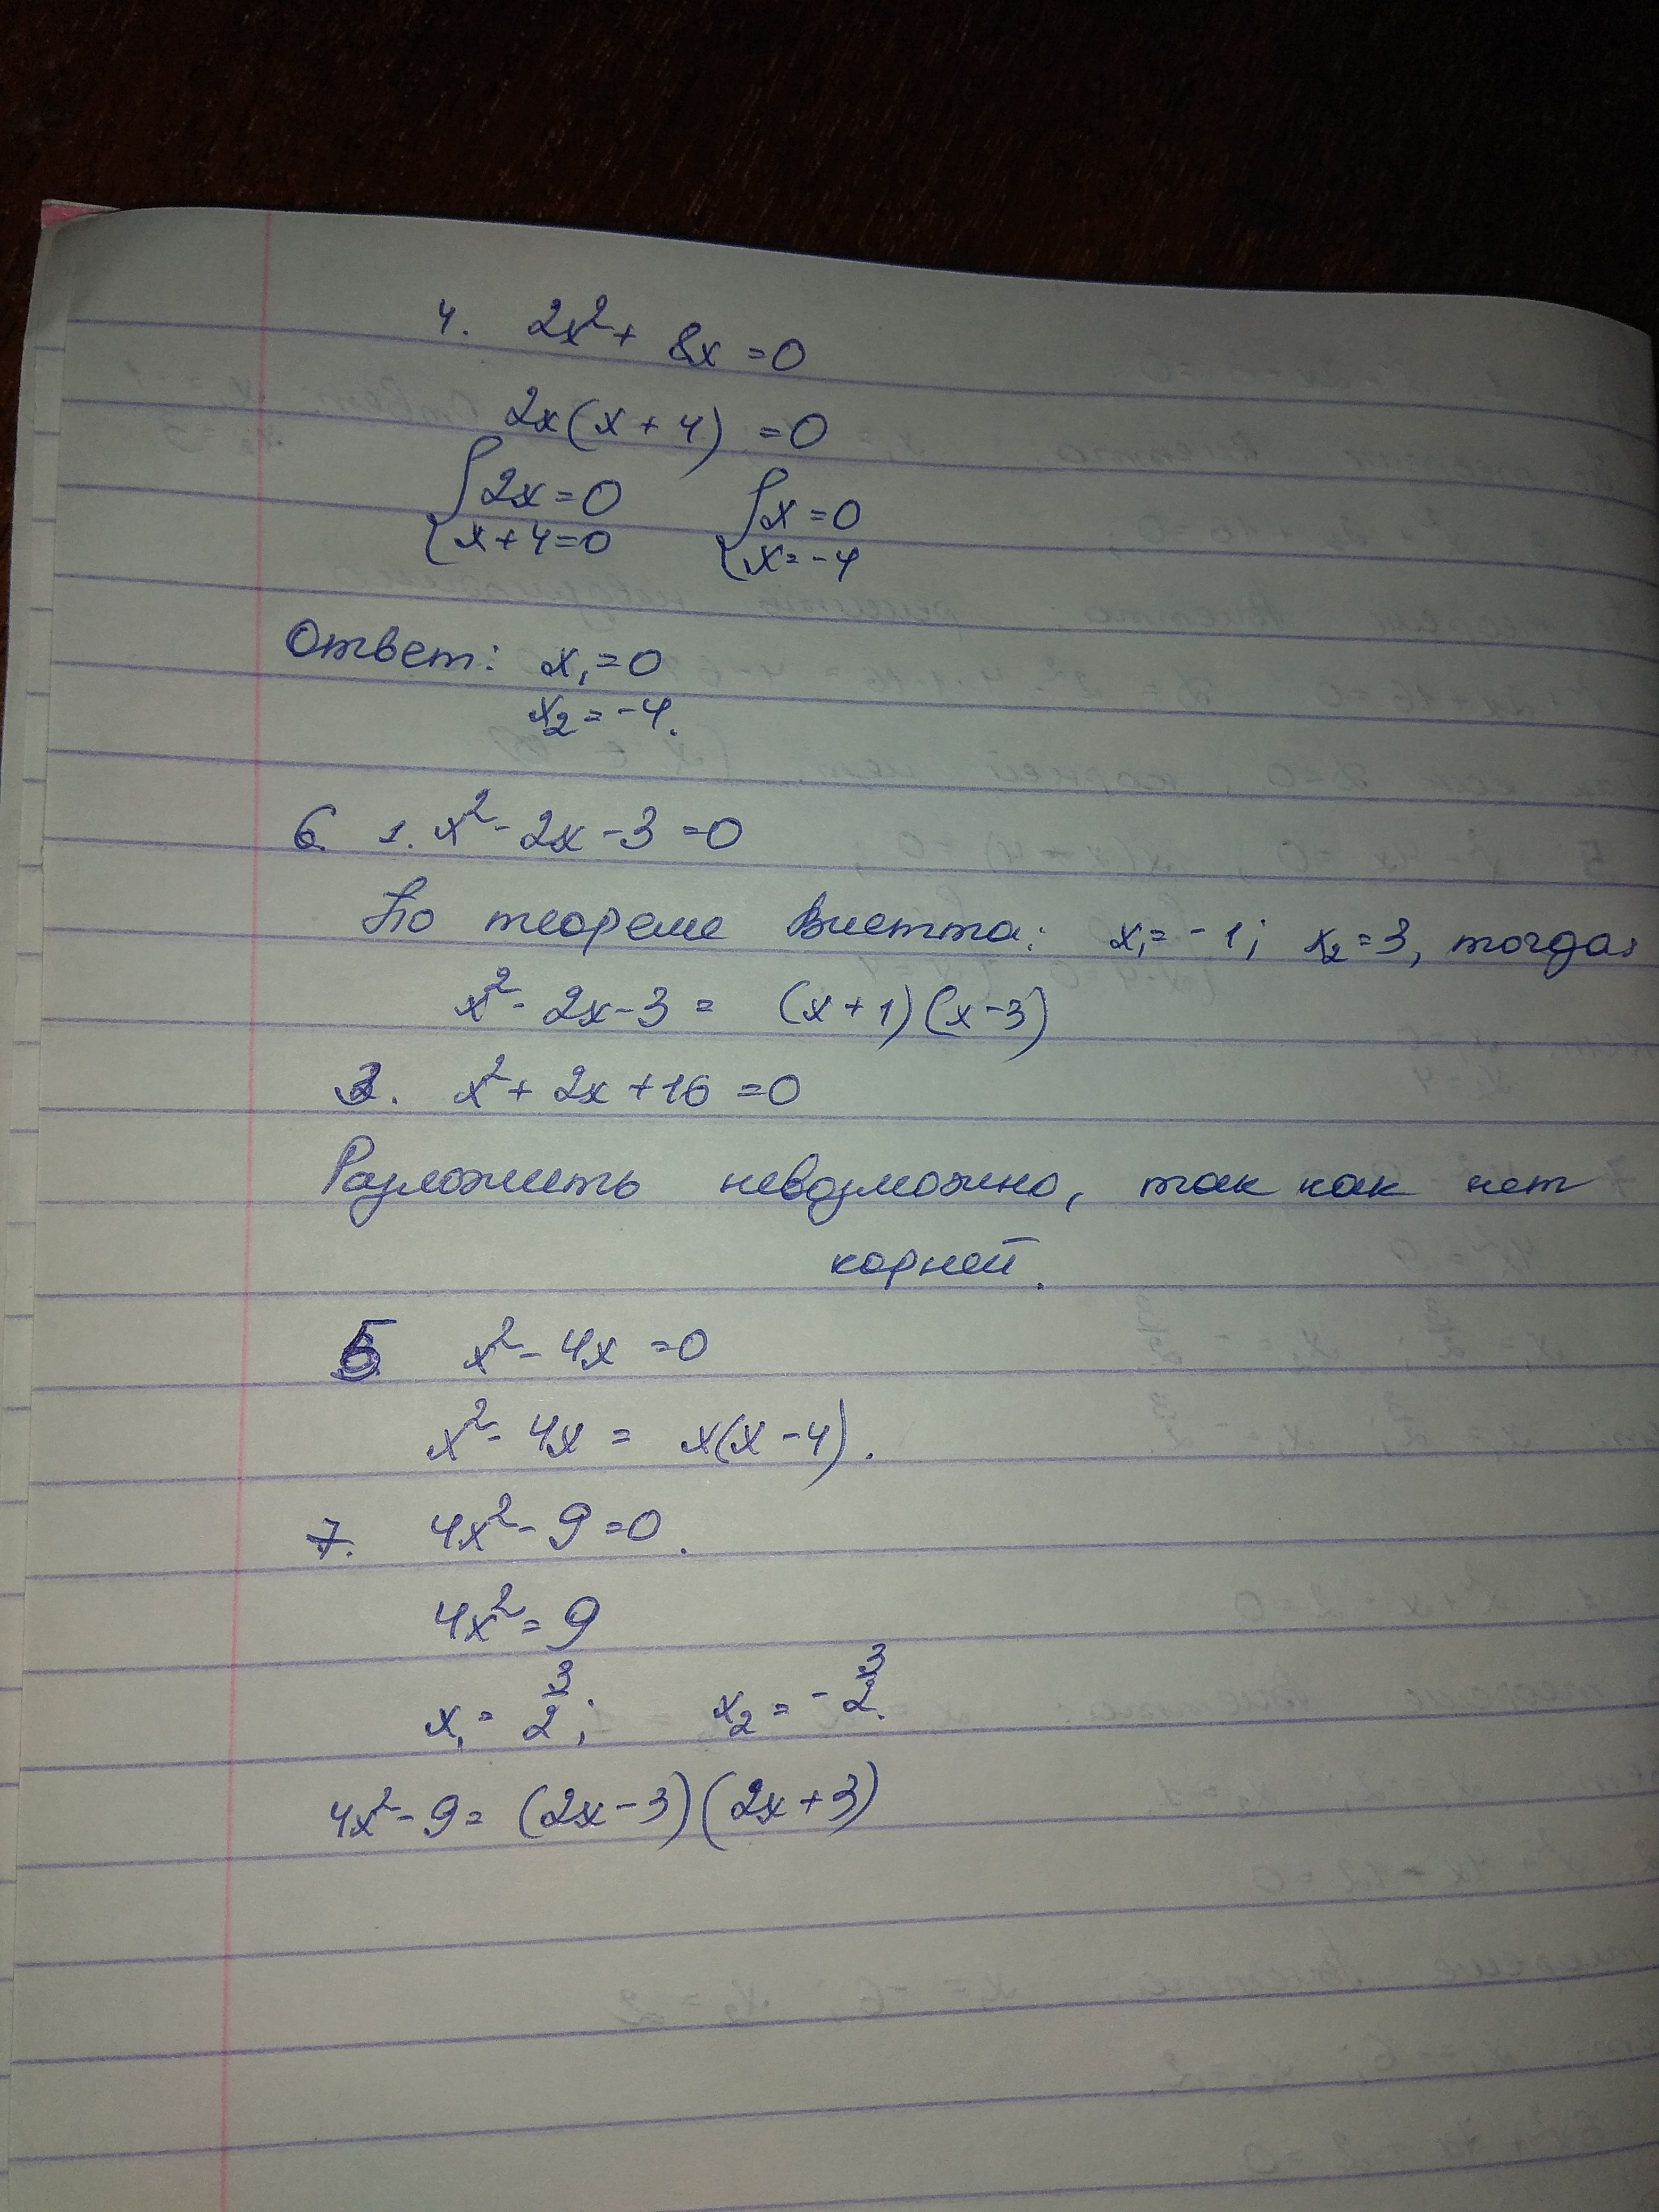 4. 2x² + 8x = 0
2x(x + 4) = 0
{2x = 0 {x = 0
{x + 4 = 0 {x = -4
Ответ: x₁ = 0
x₂ = -4.
6. 1. x² - 2x - 3 = 0
По теореме Виетта: x₁ = -1; x₂ = 3, тогда:
x² - 2x - 3 = (x + 1)(x - 3)
3. x² + 2x + 16 = 0
Разложить невозможно, так как нет
корней.
5 x² - 4x = 0
x² - 4x = x(x - 4).
7. 4x² - 9 = 0.
4x² = 9
x₁ = 3/2; x₂ = -3/2.
4x² - 9 = (2x - 3)(2x + 3)